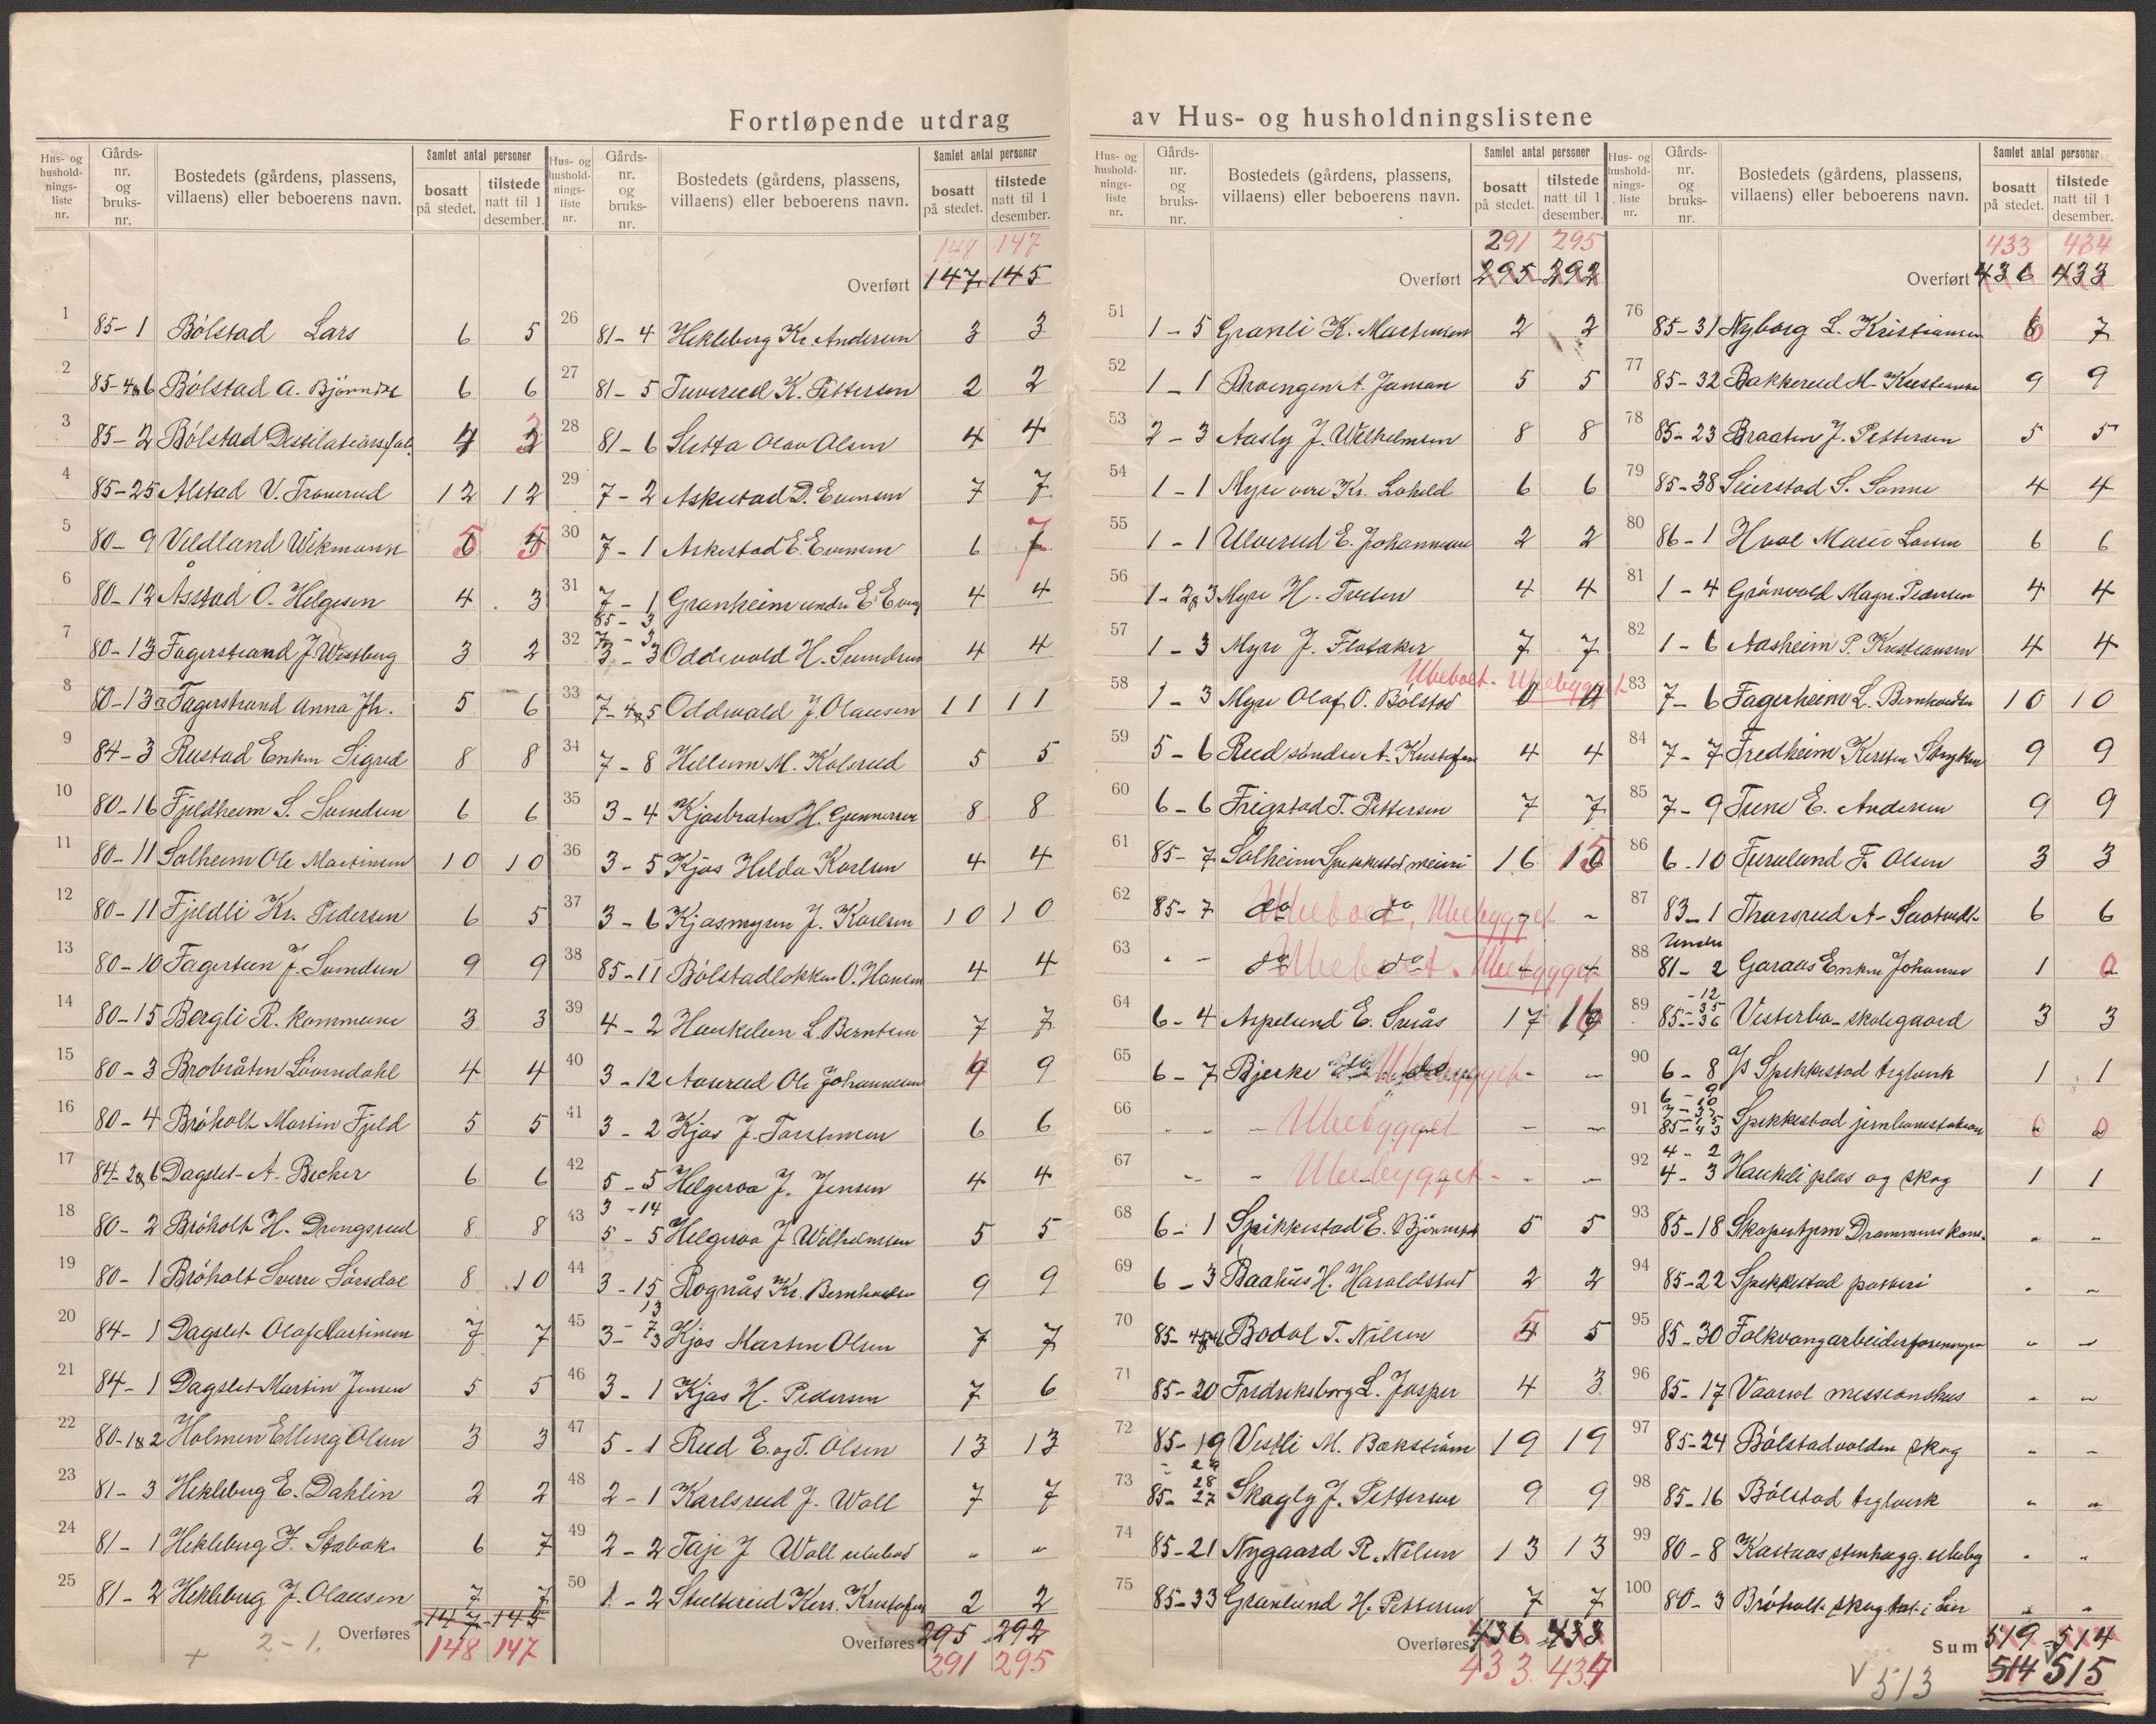 Fortløpende utdrag av Hus- og husholdningslistene
Hus- og husholdnings-liste nr. | Gårds-nr. og bruks-nr. | Bostedets (gårdens, plassens, villaens) eller beboerens navn. | Samlet antal personer bosatt på stedet. | tilstede natt til 1 desember.
1 85-1 Bølstad Lars 6 5
2 85-4&6 Bølstad A. Bjørnstad 6 6
3 85-2 Bølstad Destilationsfab. 4 3
4 85-25 Alstad V. Troverud 12 12
5 80-9 Vildland Wikmann 5 5
6 80-12 Åsstad O. Helgesen 4 3
7 80-13 Fagerstrand J. Westberg 3 2
8 80-13a Fagerstrand Anna Jh. 5 6
9 84-3 Rustad Enken Sigrid 8 8
10 80-16 Fjeldheim S. Svendsen 6 6
11 80-11 Solheim Ole Martinsen 10 10
12 80-11 Fjeldli Kr. Pedersen 6 5
13 80-10 Fagerteen J. Svendsen 9 9
14 80-15 Bergli R. kommune 3 3
15 80-3 Brobråten Lövendahl 4 4
16 80-4 Bröholt Martin Fjeld 5 5
17 84-2&6 Dagslet A. Becher 6 6
18 80-2 Bröholt H. Drengsrud 8 8
19 80-1 Bröholt Sverre Sörsdal 8 10
20 84-1 Dagslet Olaf Martinsen 7 7
21 84-1 Dagslet Martin Jensen 5 5
22 80-1&2 Holmen Elling Olsen 3 3
23 81-3 Hekleberg E. Dahlin 2 2
24 81-1 Hekleberg F. Stabak 6 7
25 81-2 Hekleberg J. Olausen 7 7
147 145
+ 2-1. Overføres 148 147
148 147
Overført 147 145
26 81-4 Hekleberg Kr. Andersen 3 3
27 81-5 Tuverud K. Pettersen 2 2
28 81-6 Sletta Olav Olsen 4 4
29 7-2 Askestad D. Evensen 7 7
30 7-1 Askestad E. Evensen 6 7
31 7-1 Granheim under E. Evens 4 4
32 85-3 7-3 3-3 Oddevold H. Svendsen 4 4
33 7-4&5 Oddevald J. Olausen 11 11
34 7-8 Hellum M. Kolsrud 5 5
35 3-4 Kjosbraten H. Gunnersen 8 8
36 3-5 Kjos Hilda Karlsen 4 4
37 3-6 Kjosmyren J. Karlsen 10 10
38 85-11 Bölstadlökken O. Hansen 4 4
39 4-2 Haukelien L. Berntsen 7 7
40 3-12 Aaserud Ole Johannesen 9 9
41 3-2 Kjos J. Torstensen 6 6
42 5-5 Helgeroa J. Jensen 4 4
43 3-14 5-5 Helgeroa J Wilhelmsen 5 5
44 3-15 Rognås Kr. Bernhardsen 9 9
45 13 -7 3-3 Kjos Martin Olsen 7 7
46 3-1 Kjos H. Pedersen 7 6
47 5-1 Rud E. og T. Olsen 13 13
48 2-1 Karlsrud J. Woll 7 7
49 2-2 Taje J Woll ubebod " "
50 1-2 Stultsrud Kers. Kristofen 2 2
Overføres 295 292
291 295
291 295
Overført 295 292
51 1-5 Granli K. Martinsen 2 2
52 1-1 Broengen A. Jonson 5 5
53 2-3 Aasly J. Wilhelmsen 8 8
54 1-1 Myre övre Kr. Loheld 6 6
55 1-1 Ulverud E. Johannesen 2 2
56 1-2&3 Myre H. Tvesten 4 4
57 1-3 Myre J. Flotaker 7 7
58 1-3 Myre Olaf O. Bölstad Ubeboet. Ubebygget 0 0
59 5-6 Rud söndre A. Kristofen 4 4
60 6-6 Frigstad T. Pettersen 7 7
61 85-7 Solheim Spikkestad meieri 16 15
62 85-7 do do Ubeboet, Ubebygget - -
63 - - do do Ubeboet. Ubebygget - -
64 6-4 Aspelund E. Sviås 17 16
65 6-7 Bjerke do Ubebygget - -
66 - - - Ubebygget - -
67 - - - Ubebygget - - -
68 6-1 Spikkestad E. Björnstad 5 5
69 6-3 Baahus H. Haraldstad 2 2
70 85-45&46 Bodal T. Nilsen 5 5
71 85-20 Fredriksborg L. Jasper 4 3
72 85-19 Vestli M. Bækström 19 19
73 - 29 28 85-27 Skogly J. Pettersen 9 9
74 85-21 Nygaard R. Nilsen 13 13
75 85-33 Granlund H. Pettersen 7 7
Overføres 436 433
433 434
433 434
Overført 436 433
76 85-31 Nyborg L. Kristiansen 6 7
77 85-32 Bakkerud M. Kristiansen 9 9
78 85-23 Braaten J. Pettersen 5 5
79 85-38 Seierstad S. Sønne 4 4
80 86-1 Hval Marie Larsen 6 6
81 1-4 Grönvold Magn. Pedersen 4 4
82 1-6 Aasheim P. Kristiansen 4 4
83 7-6 Fagerheim L. Bernhardsen 10 10
84 7-7 Fredheim Kirsten Stryken 9 9
85 7-9 Tune E. Andersen 9 9
86 6-10 Furulund F. Olsen 3 3
87 83-1 Thorsrud A. Saatvedt 6 6
88 Under 81-2 Garaas Enken Johanne 1 0
89 -12 -35 85-36 Vesterbo-skolegaard 3 3
90 6-8 a/s Spikkestad teglverk 1 1
91 Spikkestad jernbanestation 0 0
92 4-2 4-3 Haukeli plas og skog 1 1
93 85-18 Skapertjern Drammens kom. " "
94 85-22 Spikkestad potteri " "
95 85-30 Folkvang arbeiderforeningen " "
96 85-17 Vaarsol missionshus " "
97 85-24 Bölstadvolden skog - -
98 85-16 Bölstad teglverk " "
99 80-8 Kastaas stenhugg. ubeby " "
100 80-3 Bröholt skog bot. i Lier " "
Sum 519 514
V 513 514 515